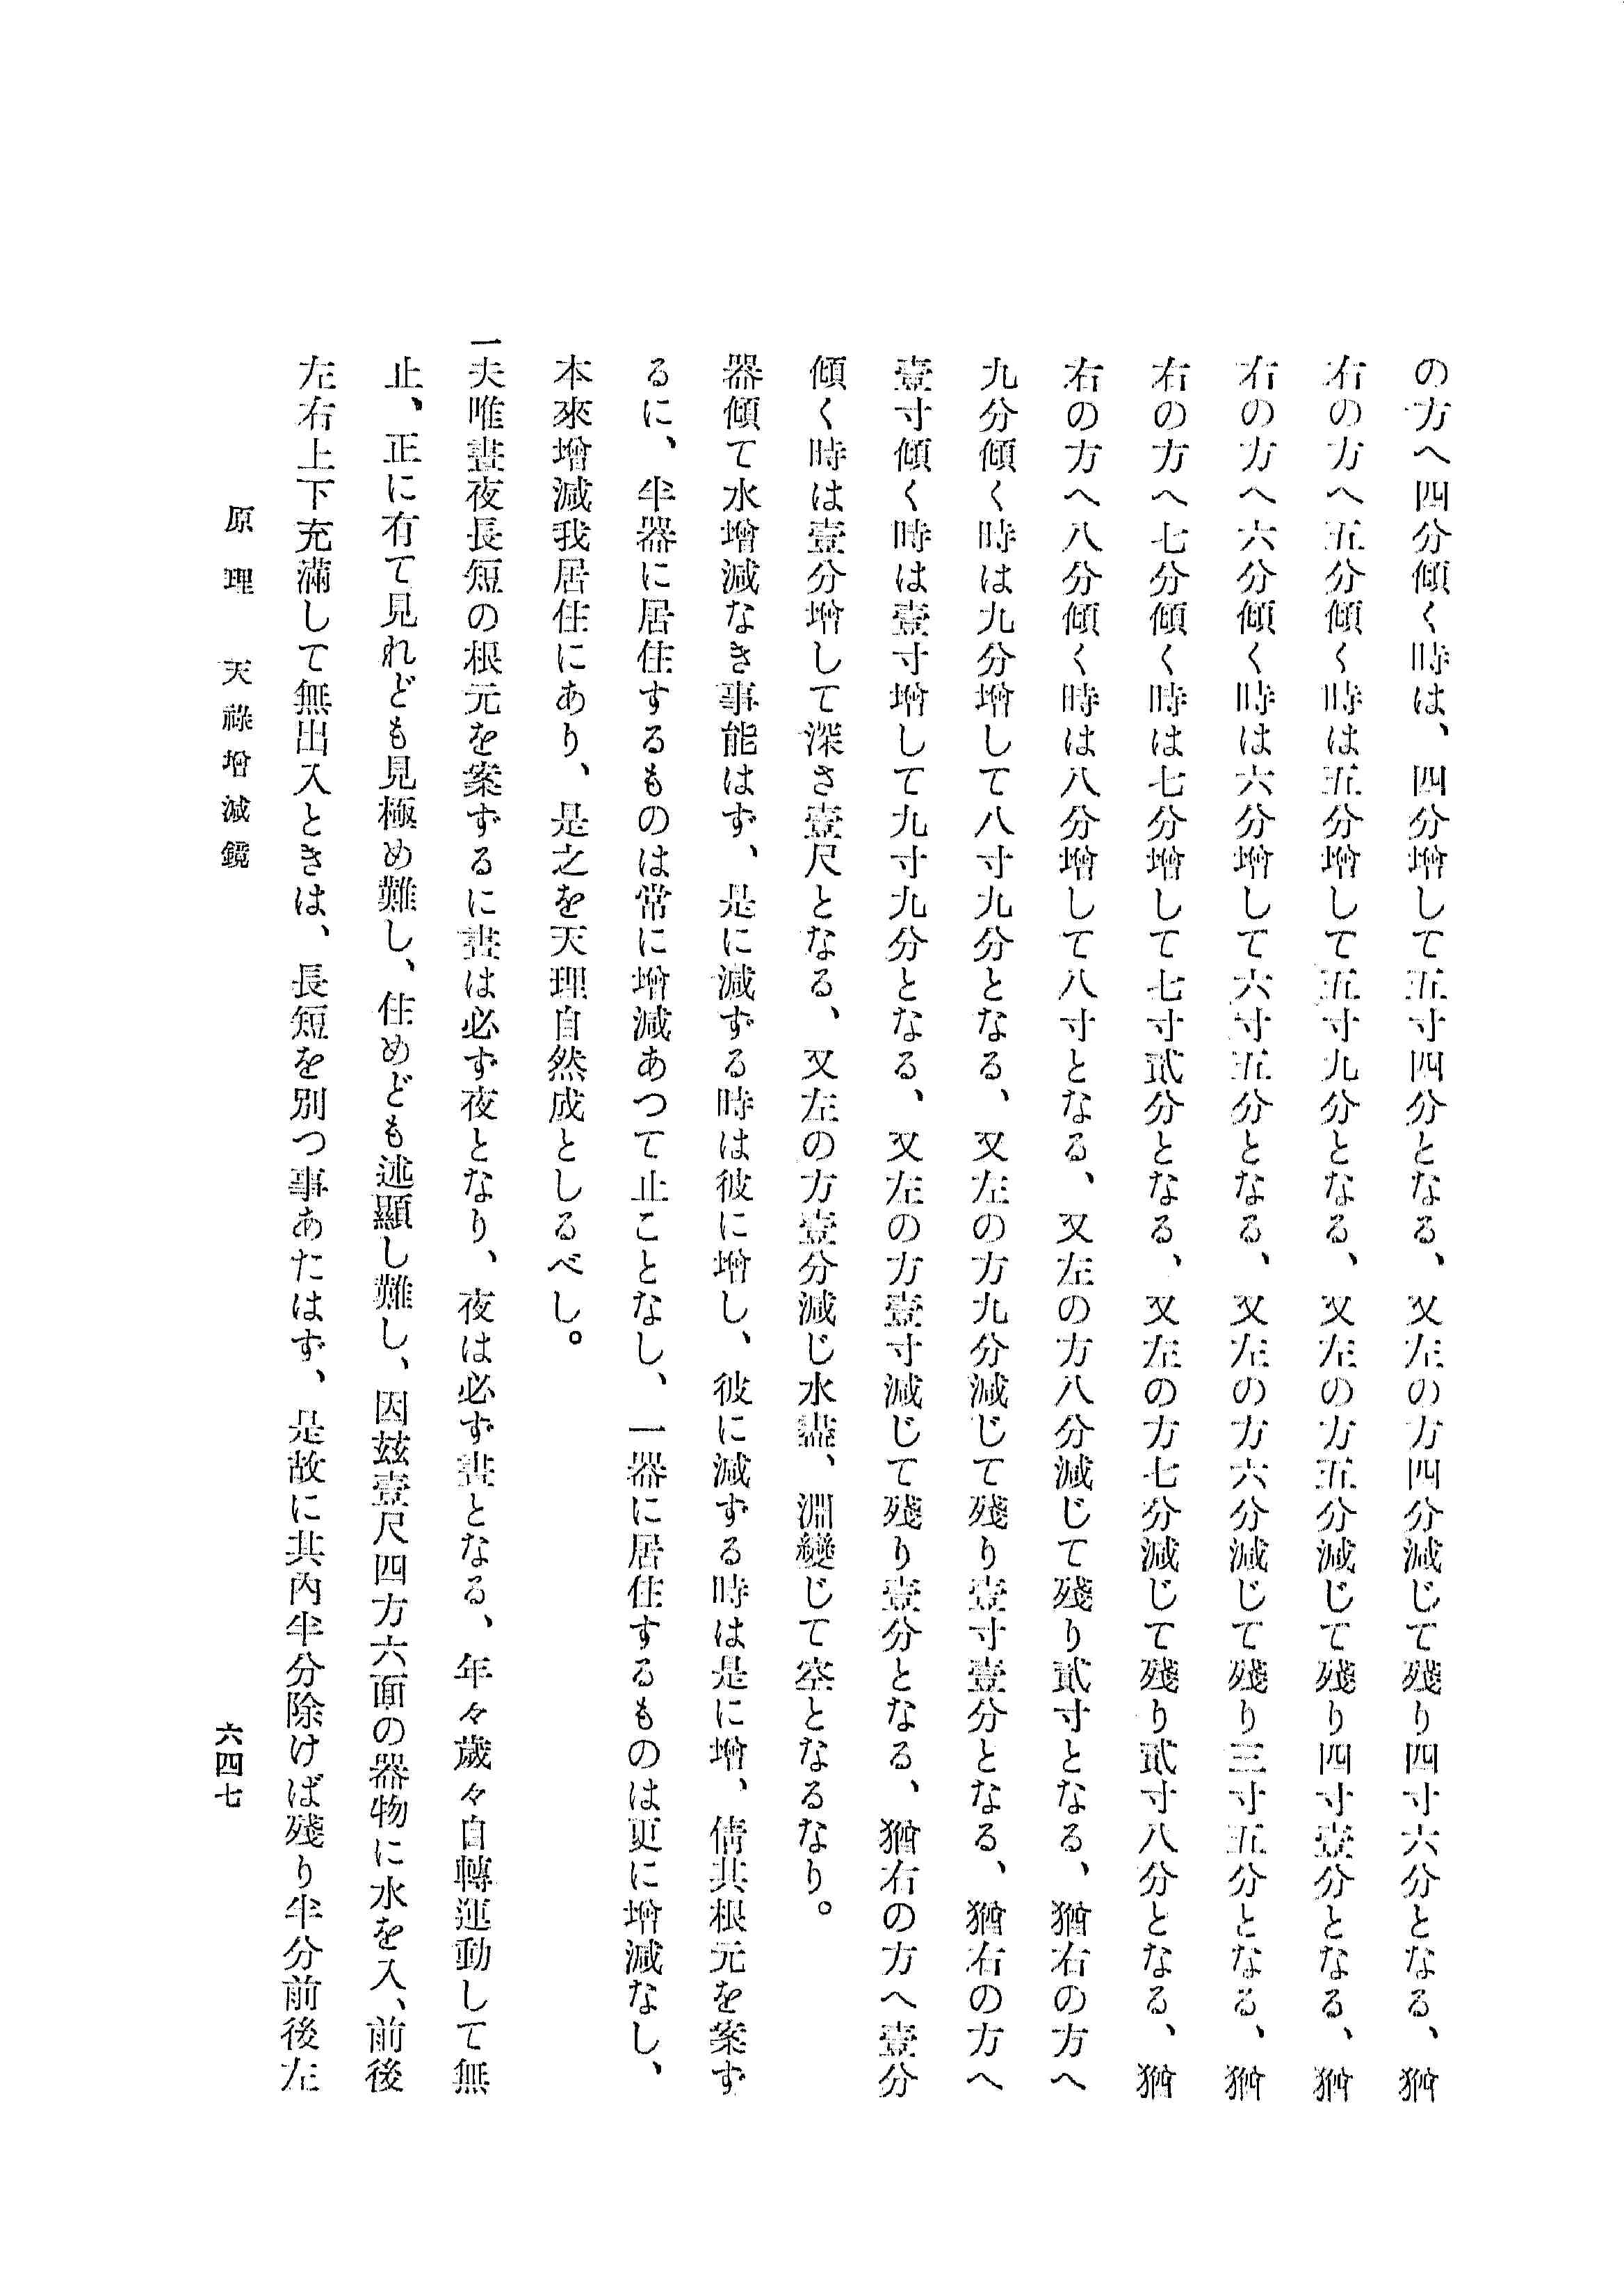 の方へ四分傾く時は、四分増して五寸四分となる、又左の方四分減じて殘り四寸六分となる、猶
右の方へ五分傾く時は五分増して五寸九分となる、又左の方五分減じて殘り四寸壹分となる、猶
右の方へ六分傾く時は六分増して六寸五分となる、又左の方六分減じて殘り三寸五分となる、猶
右の方へ七分傾く時は七分増して七寸貳分となる、又左の方七分減じて殘り貳寸八分となる、猶
右の方へ八分傾く時は八分増して八寸となる、又左の方八分減じて殘り貳寸となる、猶右の方へ
九分傾く時は九分増して八寸九分となる、又左の方九分減じて殘り壹寸壹分となる、猶右の方へ
壹寸傾く時は壹寸増して九寸九分となる、又左の方壹寸減じて殘り壹分となる、猶右の方へ壹分
傾く時は壹分増して深さ壹尺となる、又左の方壹分減じ水盡、淵變じて空となるなり。
器傾て水増減なき事能はず、是に減ずる時は彼に増し、彼に減ずる時は是に増、倩其根元を案ず
るに、半器に居住するものは常に増減あつて止ことなし、一器に居住するものは更に増減なし、
本來増減我居住にあり、是之を天理自然成としるべし。
一夫唯晝夜長短の根元を案ずるに晝は必ず夜となり、夜は必ず晝となる、年々歲々自轉運動して無
止、正に有て見れども見極め難し、住めども述顯し難し、因玆壹尺四方六面の器物に水を入、前後
左右上下充滿して無出入ときは、長短を別つ事あたはず、是故に其內半分除けば殘り半分前後左
原理　天祿增減鏡
六四七